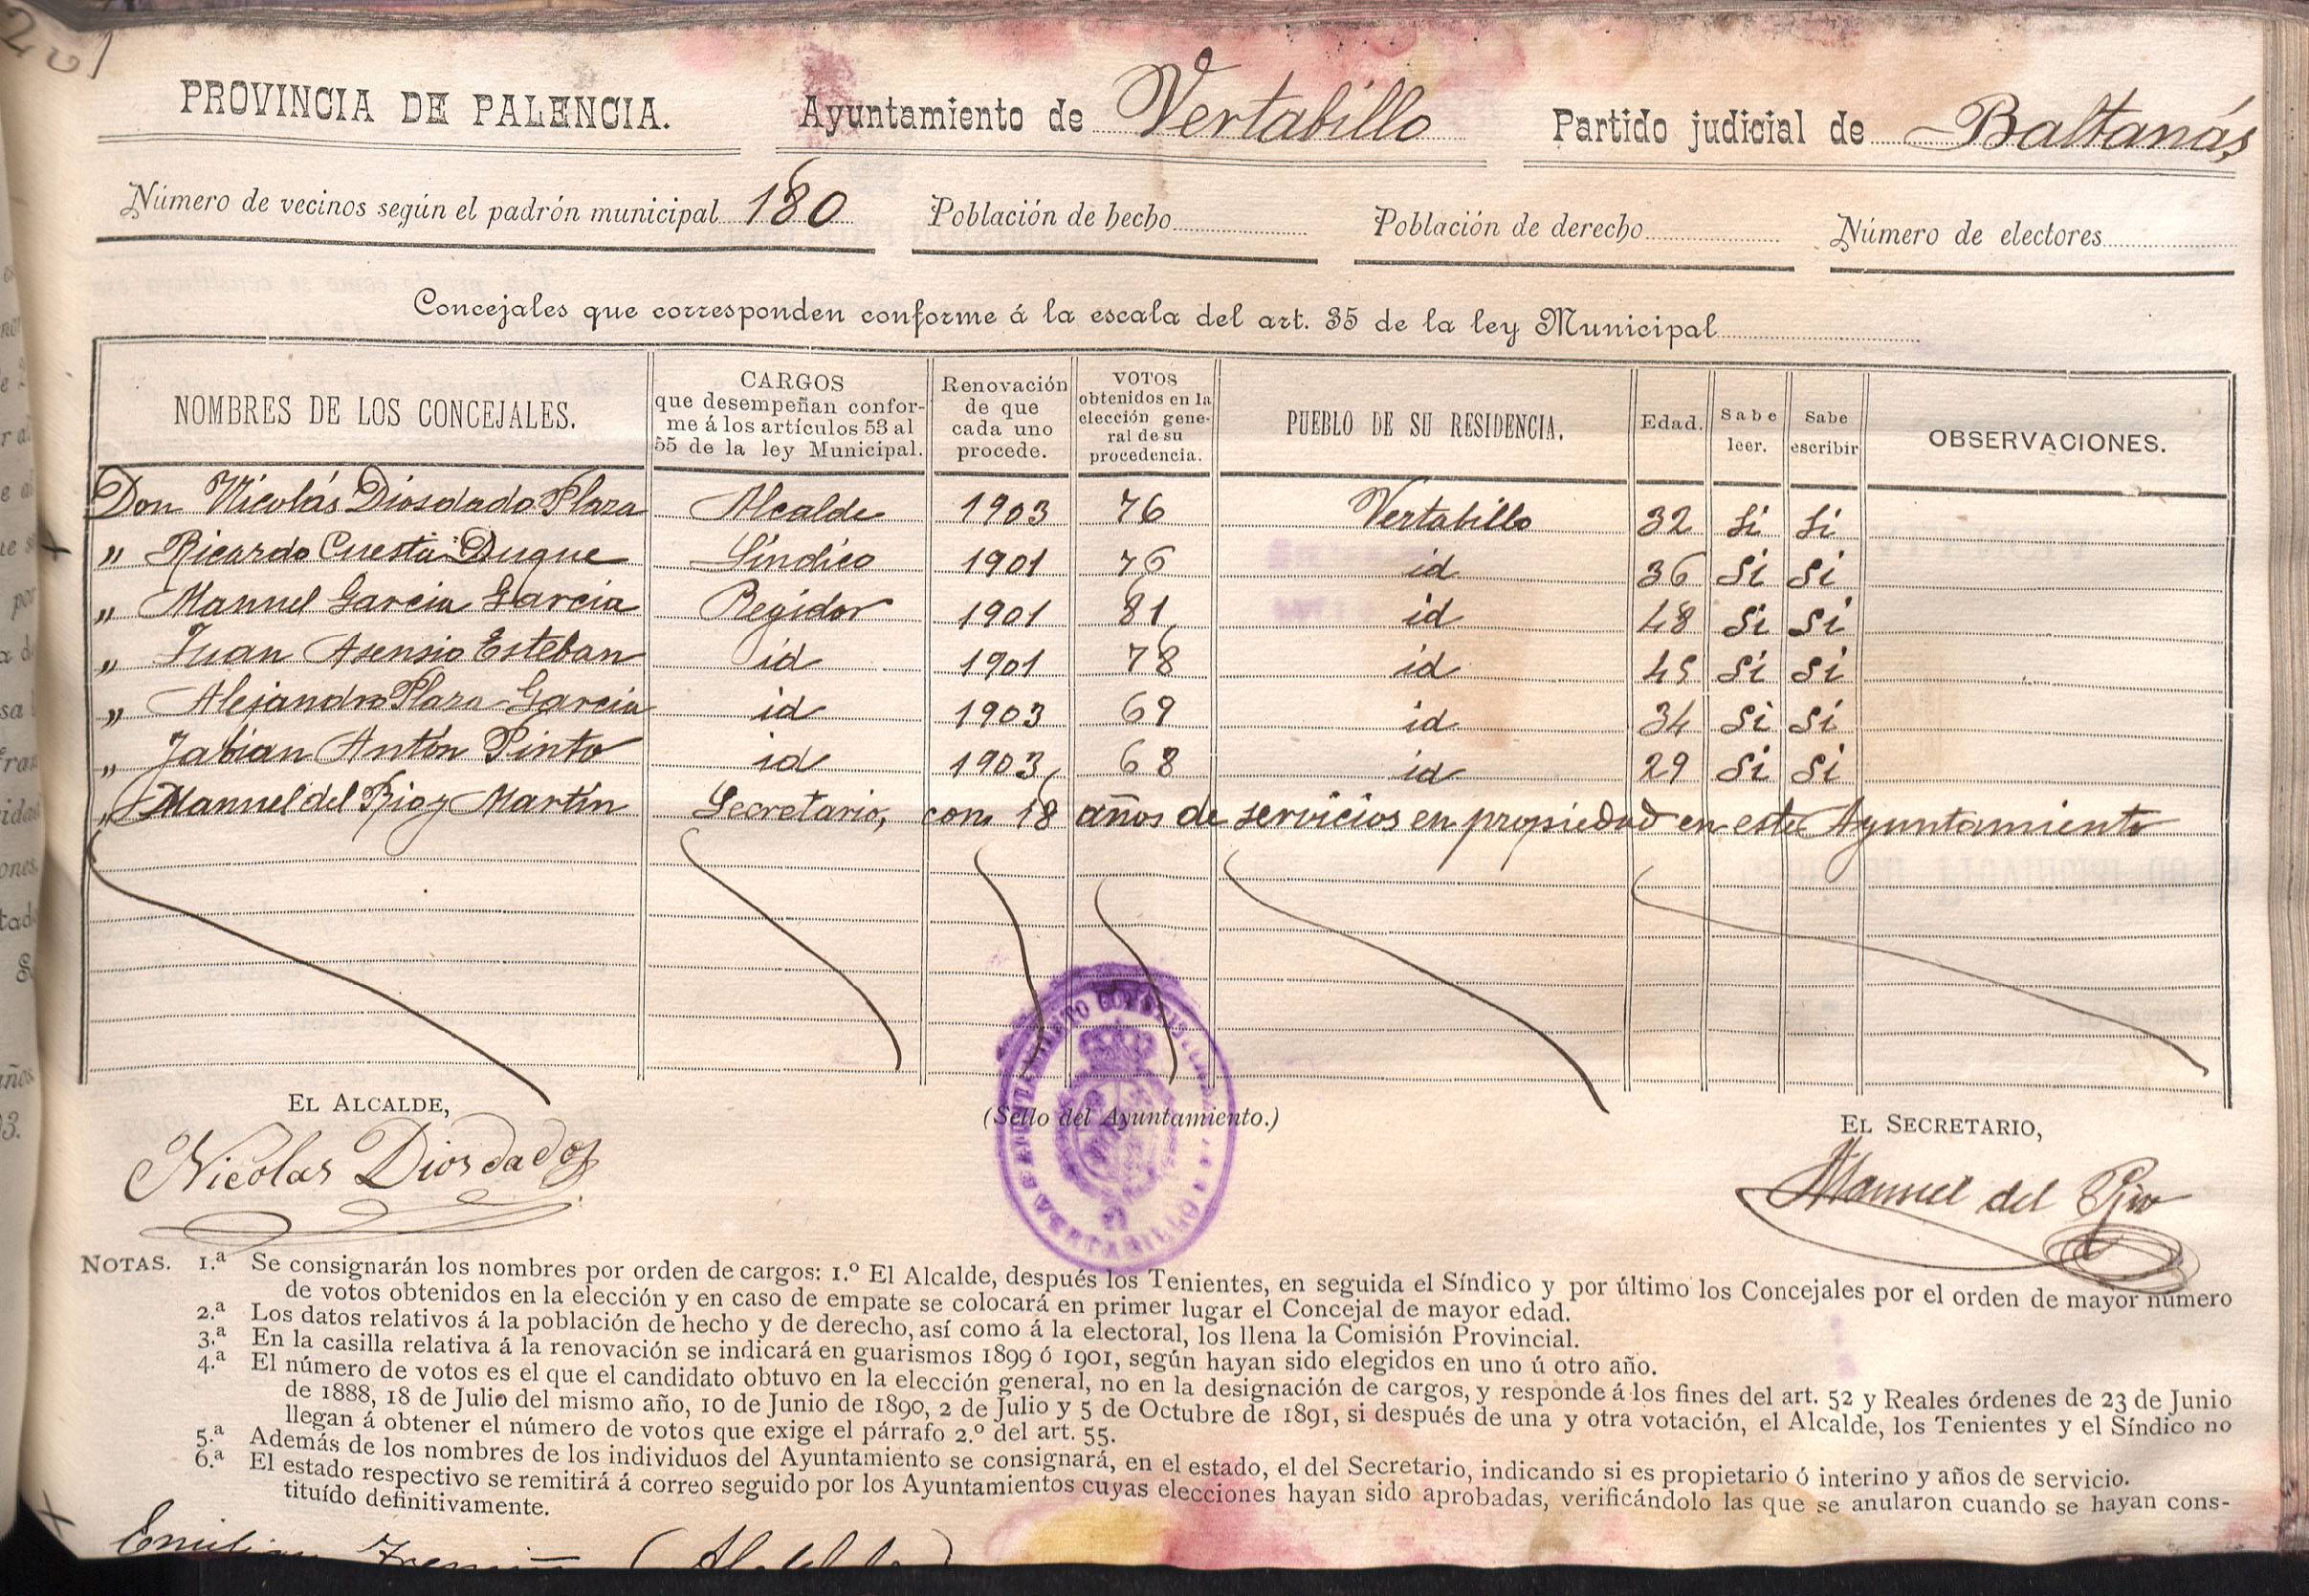 PROVINCIA DE PALENCIA. Ayuntamiento de Vertabillo Partido judicial de Baltanás
Número de vecinos según el padrón municipal 180 Población de hecho Población de derecho Número de electores
Concejales que corresponden conforme á la escala del art. 35 de la ley Municipal
NOMBRES DE LOS CONCEJALES.
CARGOS
que desempeñan confor-
me á los artículos 53 al
55 de la ley Municipal.
Renovación
de que
cada uno
procede.
VOTOS
obtenidos en la
elección gene-
ral de su
procedencia.
PUEBLO DE SU RESIDENCIA.
Edad.
Sabe
leer.
Sabe
escribir
OBSERVACIONES.
Don Nicolás Diosdado Plaza Alcalde 1903 76 Vertabillo 32 Si Si
" Ricardo Cuesta Duque Síndico 1901 76 id 36 Si Si
" Manuel Garcia Garcia Regidor 1901 81 id 48 Si Si
" Juan Asensio Esteban id 1901 78 id 45 Si Si
" Alejandro Plaza Garcia id 1903 69 id 34 Si Si
" Fabian Antón Pinto id 1903 68 id 29 Si Si
" Manuel del Rio y Martín Secretario, con 18 años de servicios en propiedad en este Ayuntamiento
EL ALCALDE,
(Sello del Ayuntamiento.)
EL SECRETARIO,
Nicolas Diosdado
Manuel del Rio
NOTAS. 1.ª Se consignarán los nombres por orden de cargos: 1.º El Alcalde, después los Tenientes, en seguida el Síndico y por último los Concejales por el orden de mayor número
de votos obtenidos en la elección y en caso de empate se colocará en primer lugar el Concejal de mayor edad.
2.ª Los datos relativos á la población de hecho y de derecho, así como á la electoral, los llena la Comisión Provincial.
3.ª En la casilla relativa á la renovación se indicará en guarismos 1899 ó 1901, según hayan sido elegidos en uno ú otro año.
4.ª El número de votos es el que el candidato obtuvo en la elección general, no en la designación de cargos, y responde á los fines del art. 52 y Reales órdenes de 23 de Junio
de 1888, 18 de Julio del mismo año, 10 de Junio de 1890, 2 de Julio y 5 de Octubre de 1891, si después de una y otra votación, el Alcalde, los Tenientes y el Síndico no
llegan á obtener el número de votos que exige el párrafo 2.º del art. 55.
5.ª Además de los nombres de los individuos del Ayuntamiento se consignará, en el estado, el del Secretario, indicando si es propietario ó interino y años de servicio.
6.ª El estado respectivo se remitirá á correo seguido por los Ayuntamientos cuyas elecciones hayan sido aprobadas, verificándolo las que se anularon cuando se hayan cons-
tituído definitivamente.